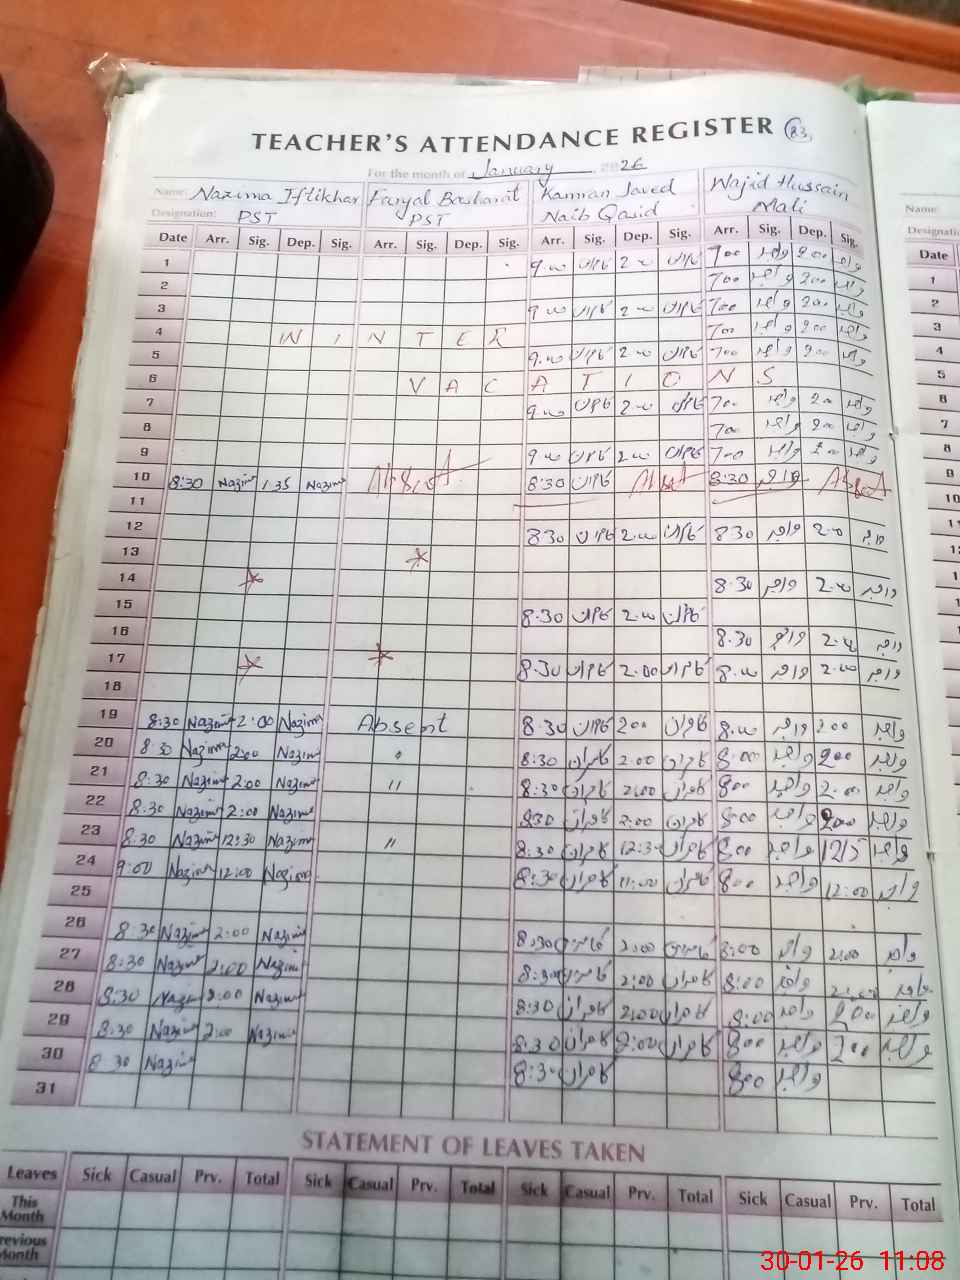 TEACHER'S ATTENDANCE REGISTER 83
For the month of January 2026
Name: Nazima Iftikhar Faryal Basharat Kamran Javed Wajid Hussain
Designation: PST PST Naib Qasid Mali
Date Arr. Sig. Dep. Sig. Arr. Sig. Dep. Sig. Arr. Sig. Dep. Sig. Arr. Sig. Dep. Sig.
1 9.00 کامران 2.00 کامران 700 واجد 200 واجد
2 700 واجد 200 واجد
3 9.00 کامران 2.00 کامران 700 واجد 200 واجد
4 WINTER 700 واجد 200 واجد
5 9.00 کامران 2.00 کامران 700 واجد 200 واجد
6 VACATIONS
7 9.00 کامران 2.00 کامران 700 واجد 200 واجد
8 700 واجد 200 واجد
9 9.00 کامران 2.00 کامران 700 واجد 200 واجد
10 8:30 Nazima 1:35 Nazima 8:30 کامران 8:30 واجد
11
12 8:30 کامران 2.00 کامران 8:30 واجد 2.00 واجد
13
14 8:30 واجد 2.00 واجد
15 8:30 کامران 2.00 کامران
16 8:30 واجد 2.00 واجد
17 8:30 کامران 2.00 کامران 8.00 واجد 2.00 واجد
18
19 8:30 Nazima 2:00 Nazima Absent 8:30 کامران 200 کامران 8.00 واجد 200 واجد
20 8:30 Nazima 2:00 Nazima 8:30 کامران 2:00 کامران 8:00 واجد 200 واجد
21 8:30 Nazima 2:00 Nazima " 8:30 کامران 2:00 کامران 800 واجد 2:00 واجد
22 8:30 Nazima 2:00 Nazima 830 کامران 2:00 کامران 8:00 واجد 200 واجد
23 8:30 Nazima 12:30 Nazima " 8:30 کامران 12:30 کامران 800 واجد 1215 واجد
24 9:00 Nazima 12:00 Nazima 8:30 کامران 11:00 کامران 800 واجد 12:00 واجد
25
26 8:30 Nazima 2:00 Nazima 8:30 کامران 2:00 کامران 8:00 واجد 2:00 واجد
27 8:30 Nazima 2:00 Nazima 8:30 کامران 2:00 کامران 8:00 واجد 2:00 واجد
28 8:30 Nazima 2:00 Nazima 8:30 کامران 2:00 کامران 8:00 واجد 200 واجد
29 8:30 Nazima 2:00 Nazima 8:30 کامران 2:00 کامران 800 واجد 200 واجد
30 8:30 Nazima 8:30 کامران 800 واجد
31
STATEMENT OF LEAVES TAKEN
Leaves Sick Casual Prv. Total Sick Casual Prv. Total Sick Casual Prv. Total Sick Casual Prv. Total
This Month
Previous Month
Name:
Date
1
2
3
4
5
6
7
8
9
10
30-01-26 11:08